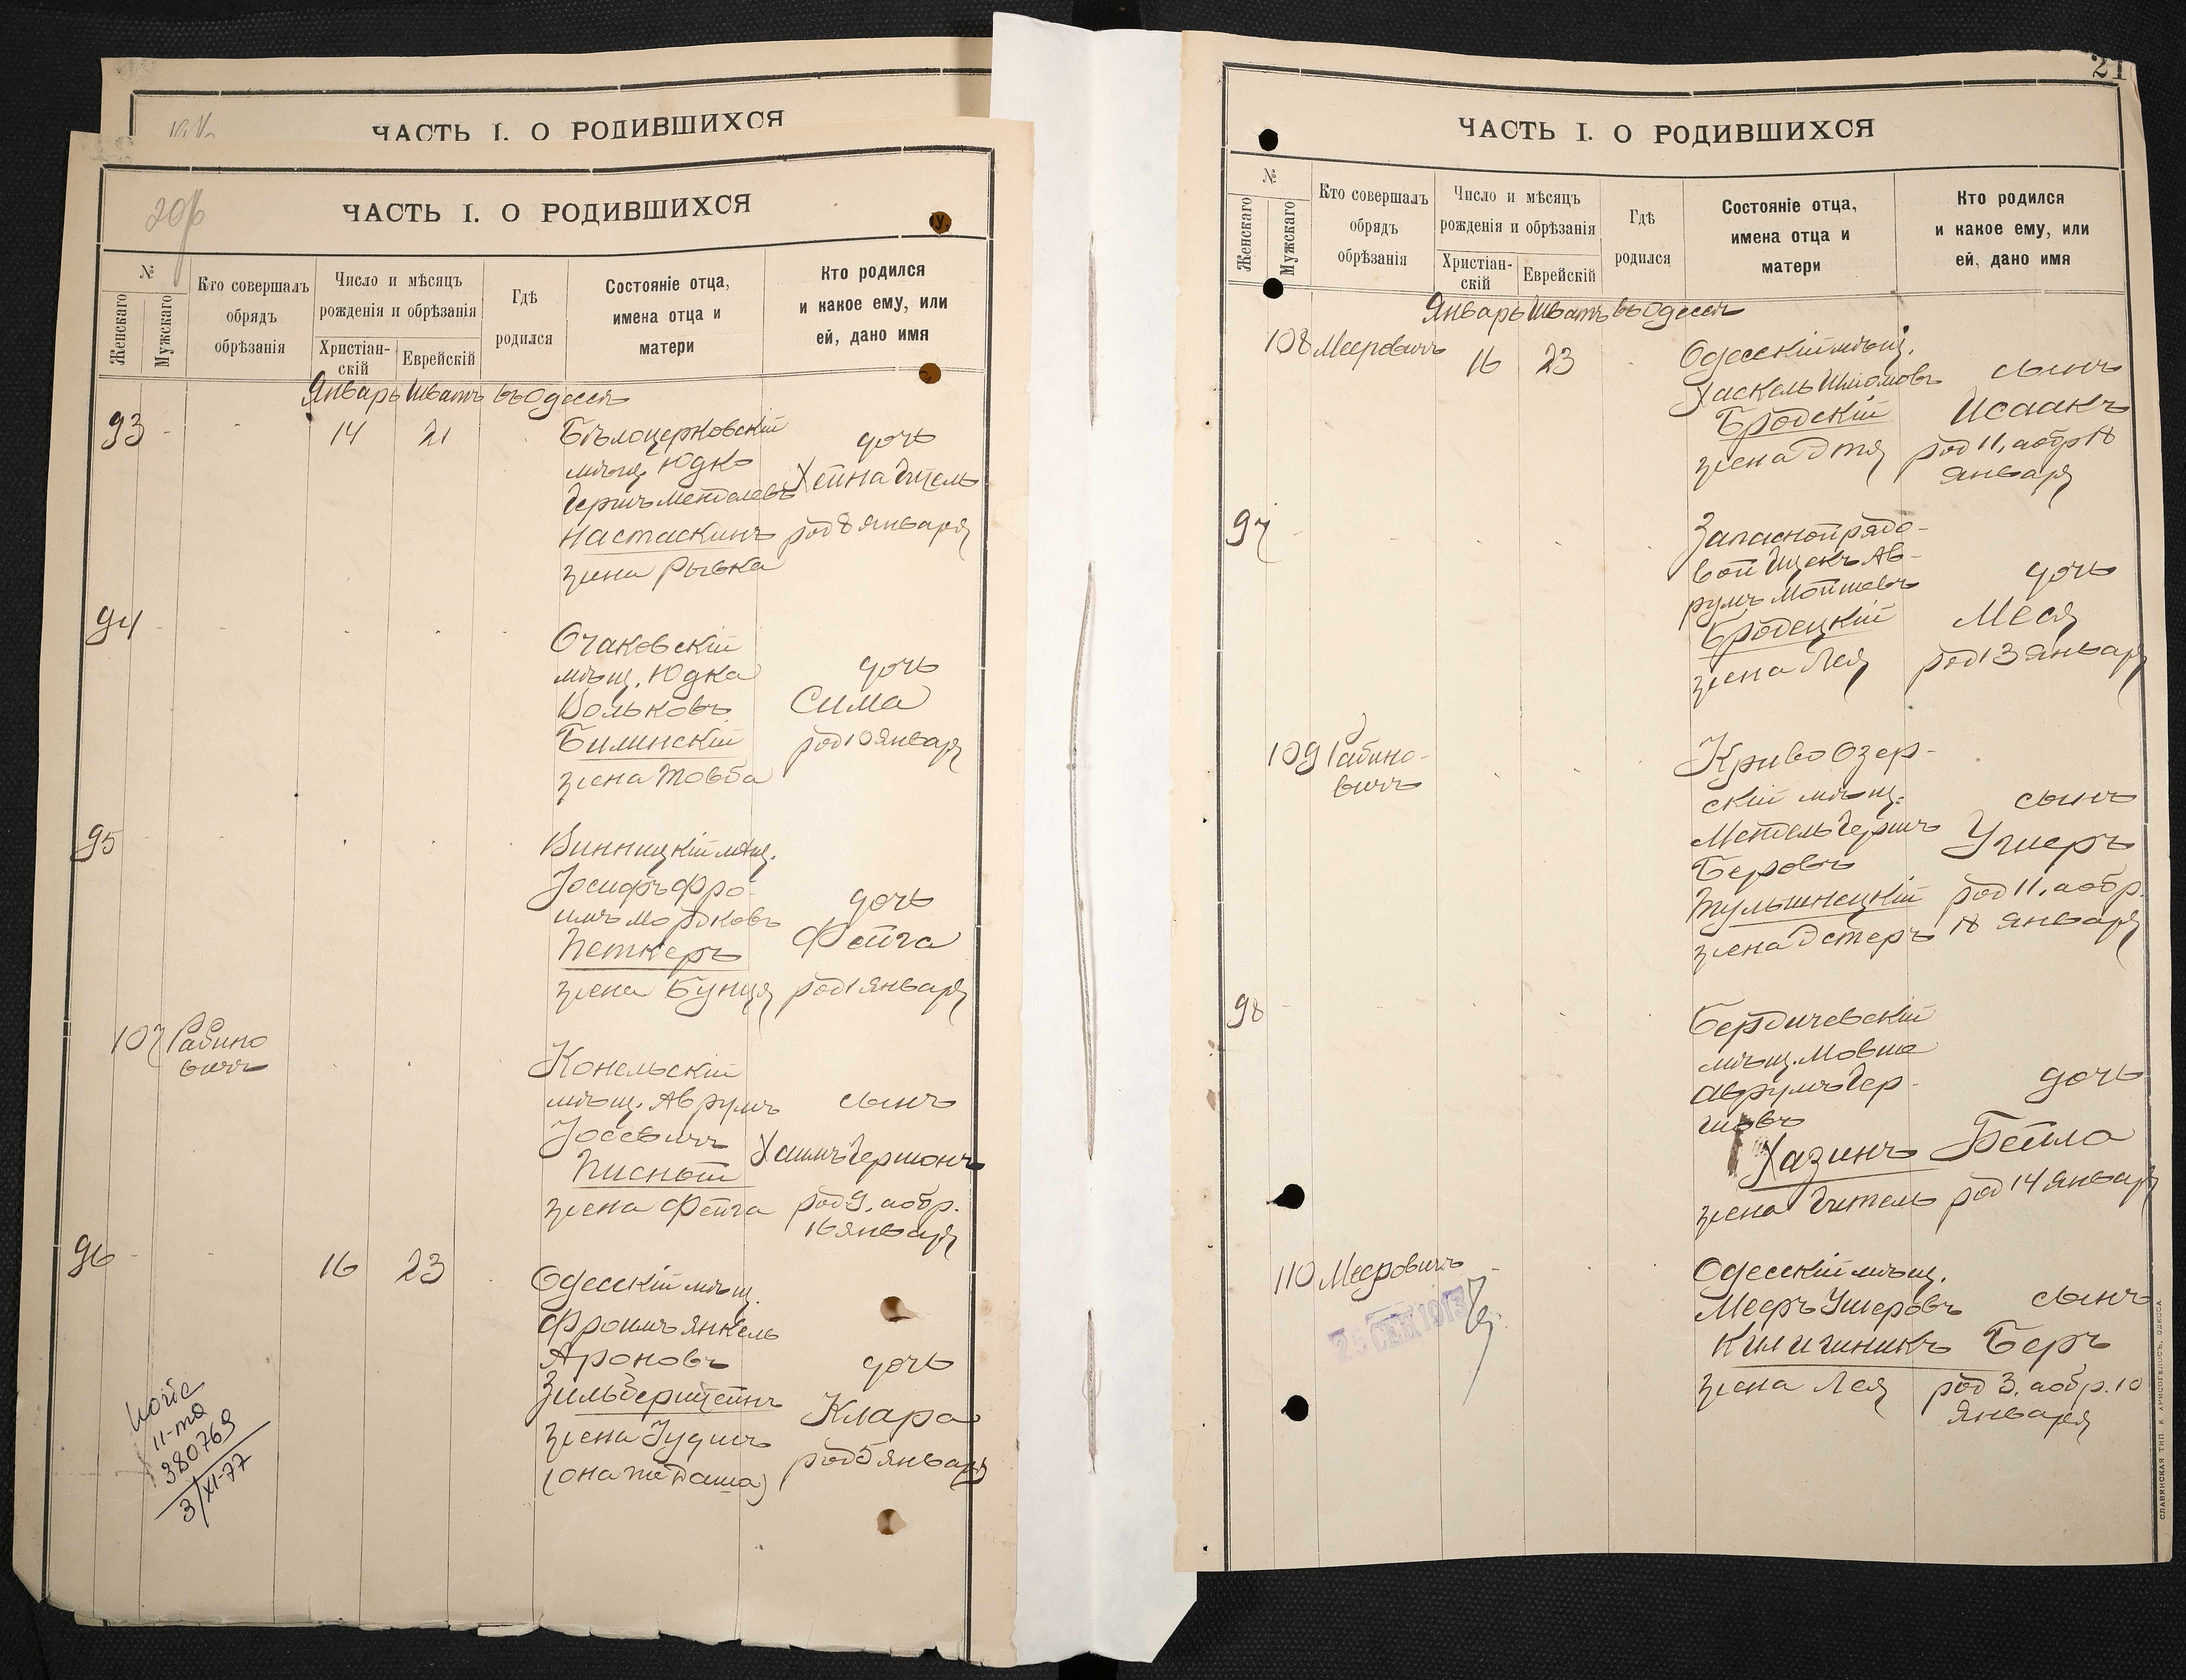 ЧАСТЬ I. О РОДИВШИХСЯ
20об
ЧАСТЬ I. О РОДИВШИХСЯ
№
Женскаго
Мужскаго
Кто совершалъ
обрядъ
обрѣзанія
Число и мѣсяцъ
рожденія и обрѣзанія
Христіан-
скій
Еврейскій
Гдѣ
родился
Состояніе отца,
имена отца и
матери
Кто родился
и какое ему, или
ей, дано имя
Январь Шватъ въ Одессѣ
93 - - 14 21
Бѣлоцерковскій
мѣщ. Юдко
Гершъ Менделевъ
Настаскинъ
жена Рывка
дочь
Хейна Гитель
род 8 января
94
Очаковскій
мѣщ. Юдка
Вольковъ
Билинскій
жена Товба
дочь
Сима
род 10 января
95
Винницкій мѣщ.
Іосифъ Фро-
имъ Мордковъ
Петкеръ
жена Бунця
дочь
Фейга
род 1 января
107 Рабино
вичъ
Конельскій
мѣщ. Аврумъ
Іосевичъ
Писной
жена Фейга
сынъ
Хаимъ Гершонъ
род 9, а обр.
16 января
96 - - 16 23
Одесскій мѣщ.
Фроимъ Янкель
Ароновъ
Зильберштейнъ
жена Іудись
(она же Даша)
дочь
Клара
род 5 января
11-та
380769
3/XI-77
21
ЧАСТЬ I. О РОДИВШИХСЯ
№
Женскаго
Мужскаго
Кто совершалъ
обрядъ
обрѣзанія
Число и мѣсяцъ
рожденія и обрѣзанія
Христіан-
скій
Еврейскій
Гдѣ
родился
Состояніе отца,
имена отца и
матери
Кто родился
и какое ему, или
ей, дано имя
Январь Шватъ въ Одессѣ
108 Мееровичъ 16 23
Одесскій мѣщ.
Хаскель Шліомовъ
Бродскій
жена Этя
сынъ
Исаакъ
род 11, а обр 18
января
97
Запасной рядо-
вой Ицекъ Ав-
румъ Мойшевъ
Бродецкій
жена Лея
дочь
Меся
род 13 января
109 Рабино-
вичъ
Криво Озер-
скій мѣщ.
Мендель Гершъ
Беровъ
Тульшнецкій
жена Эстеръ
сынъ
Ушеръ
род 11, а обр.
18 января
98
Бердичевскій
мѣщ. Мовша
Аврумъ Гер-
шовъ
Хазинъ
жена Гитель
дочь
Бейла
род 14 января
110 Мееровичъ
25 СЕН 1913
Одесскій мѣщ.
Мееръ Ушеровъ
Килишникъ
жена Лея
сынъ
Беръ
род 3, а обр. 10
января
СЛАВЯНСКАЯ ТИП. Е. ХРИСОГЕЛОСЪ, ОДЕССА